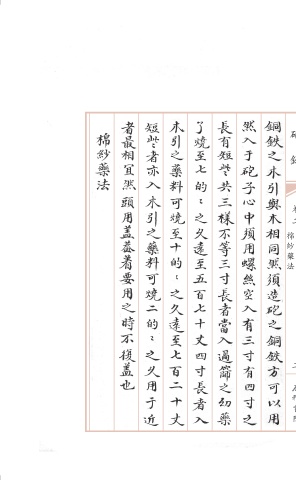 銅鉄之木引與木相同然須造砲之銅鉄方可以用
然入于砲子心中須用螺絲空入有三寸有四寸之
長有短些共三樣不等三寸長者當入過篩之幼藥
了燒至七的〻之久遠至五百七十丈四寸長者入
木引之藥料可燒至十的〻之久遠至七百二十丈
短些者亦入木引之藥料可燒二的〻之久用于近
者最相宜然頭用蓋蓋着要用之時不復蓋也
棉紗藥法